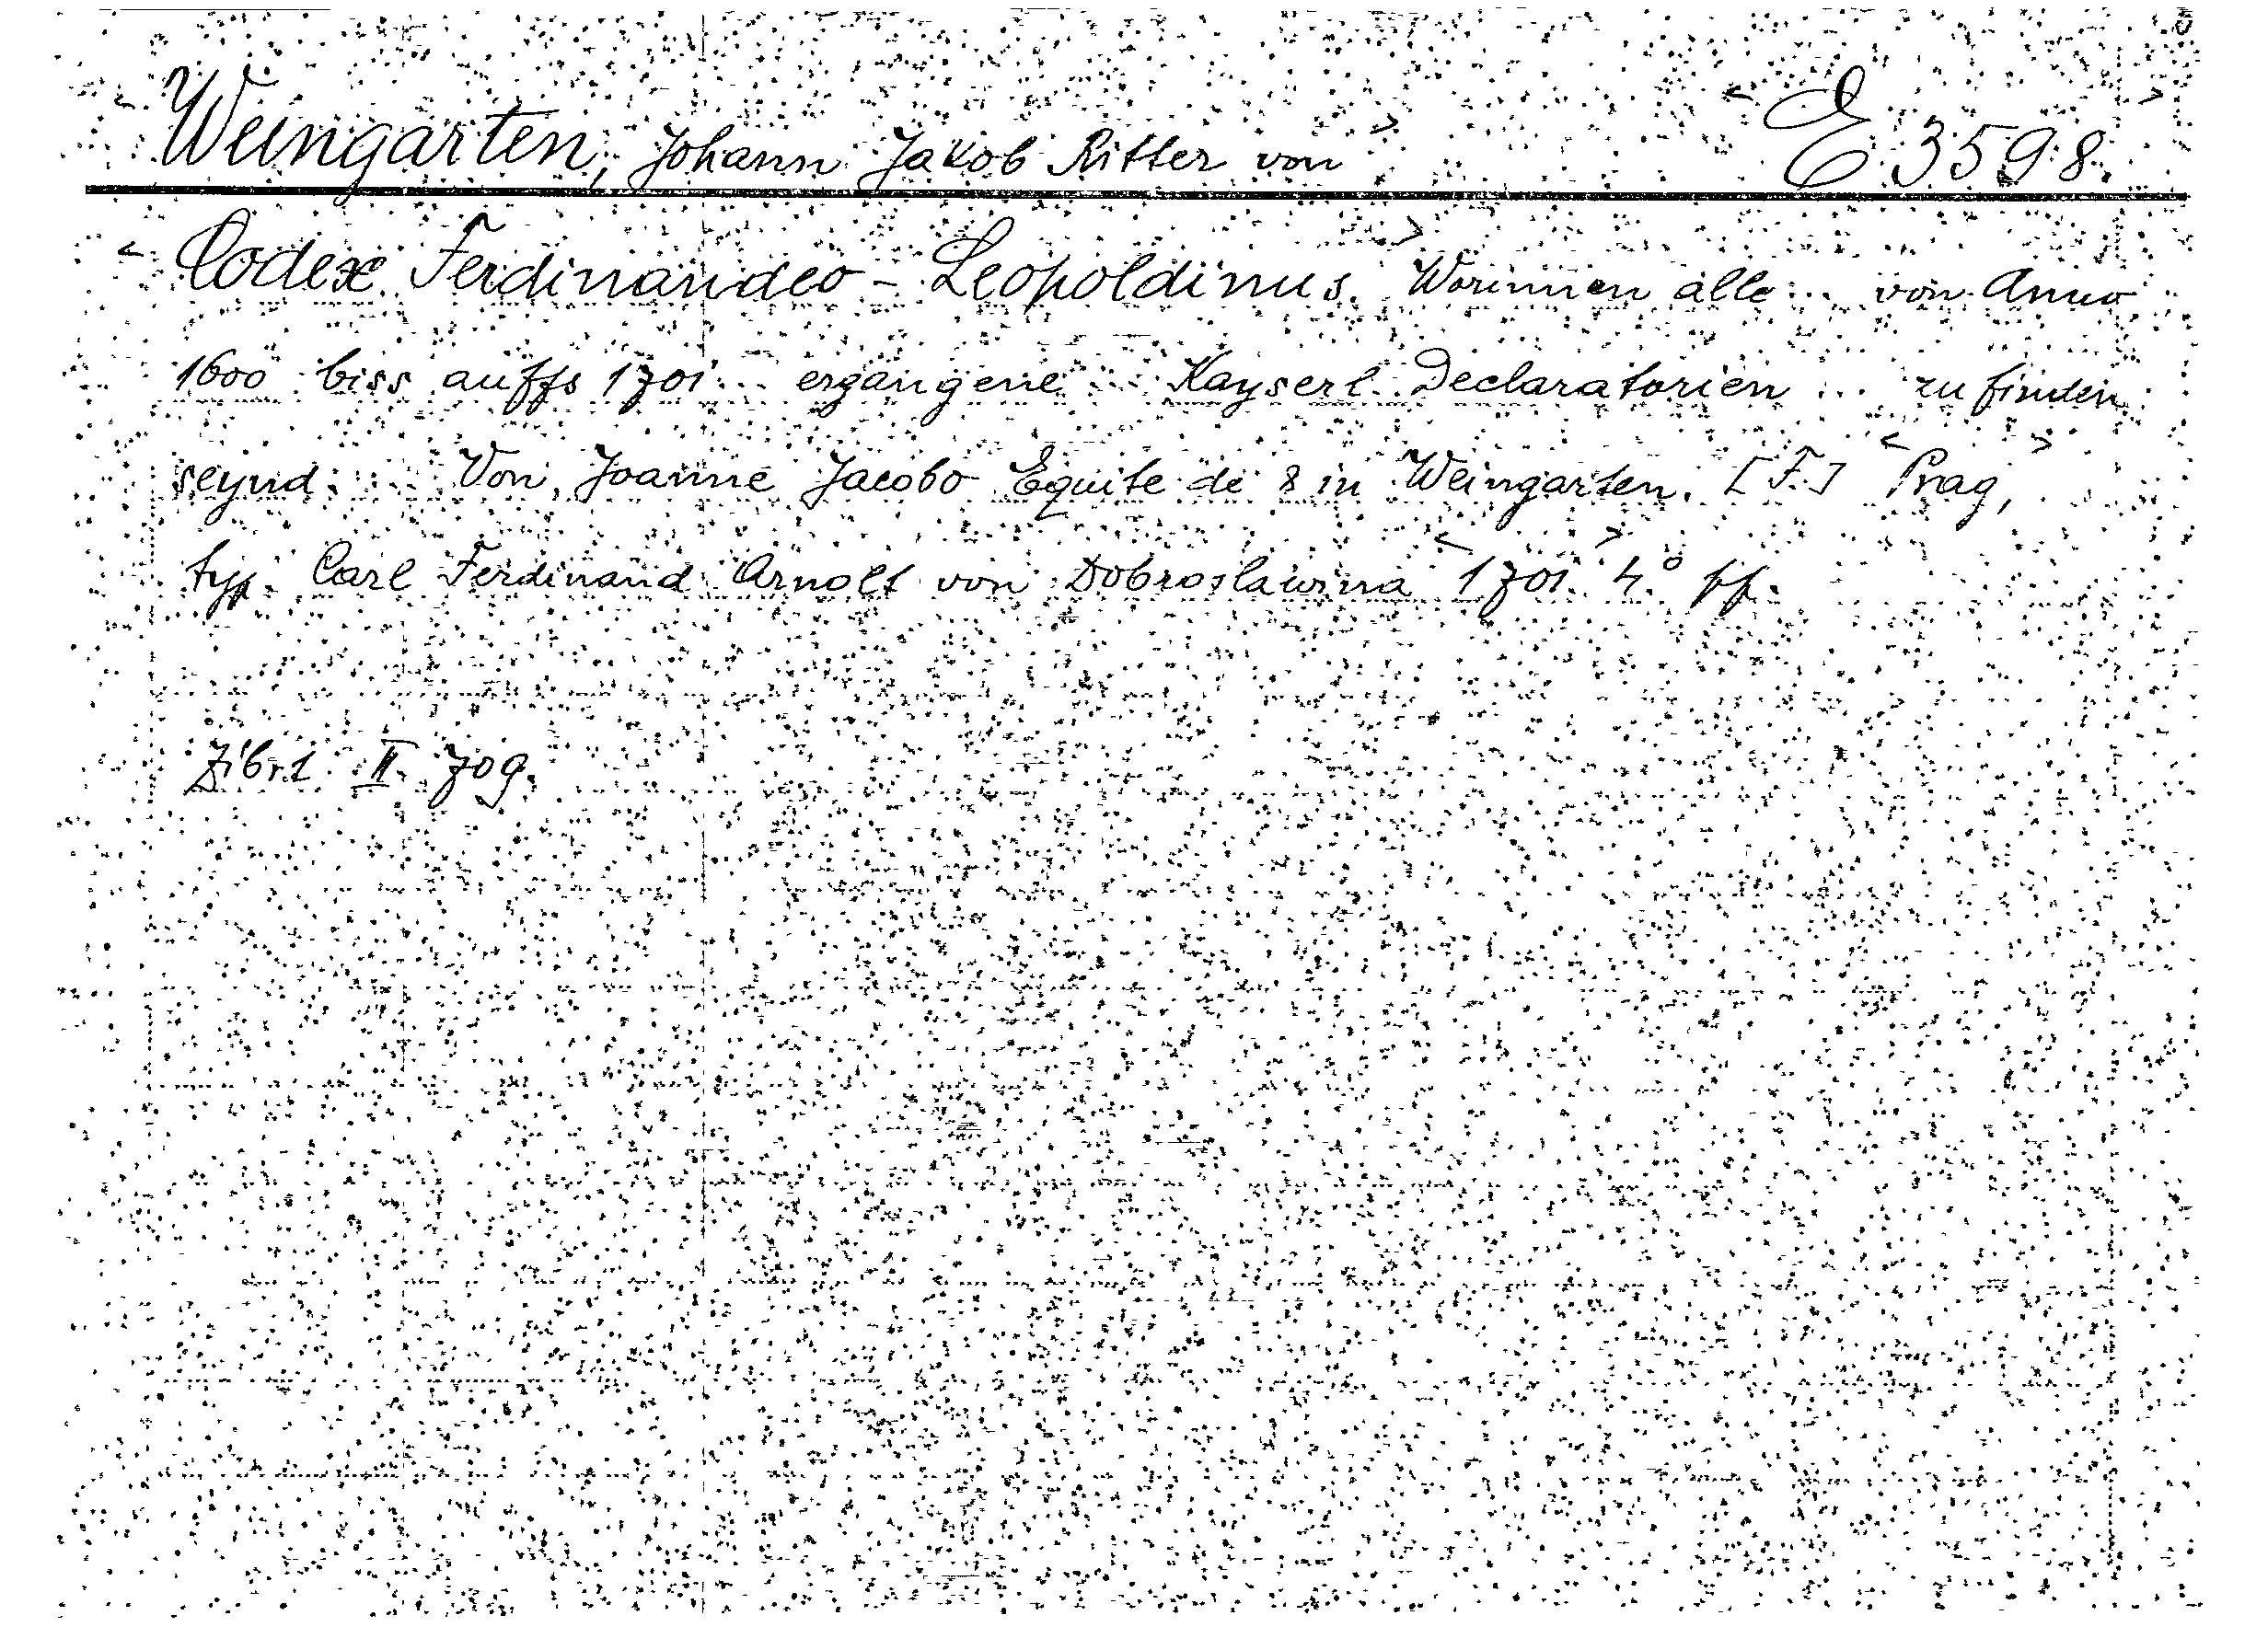 Weingarten, Johann Jakob Ritter von E 3598.
Codex Ferdinandeo - Leopoldinus. Worinnen alle ... von Anno
1600 biss auffs 1701 ... ergangene ... Kayserl. Declaratorien ... zu finden
seynd. ... Von Joanne Jacobo Equite de & in Weingarten. [F.] Prag,
typ. Carl Ferdinand Arnolt von Dobroslawina 1701. 4.°
Zíbrt II. 709.